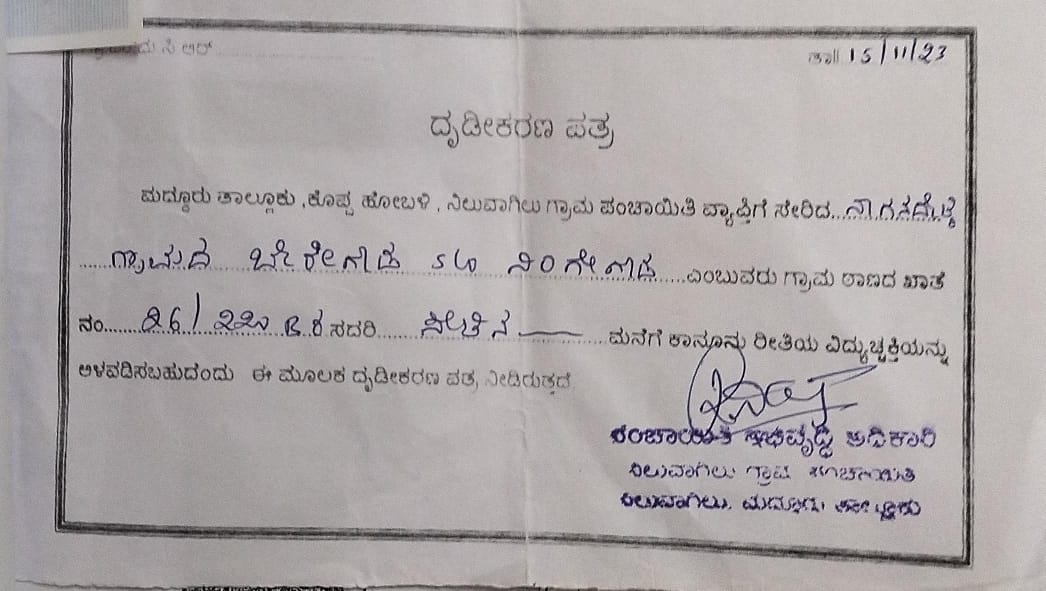 ಸಿ ಆರ್
ತಾ|| 15/11/23
ದೃಢೀಕರಣ ಪತ್ರ
ಮದ್ದೂರು ತಾಲ್ಲೂಕು, ಕೊಪ್ಪ ಹೋಬಳಿ, ನಿಲುವಾಗಿಲು ಗ್ರಾಮ ಪಂಚಾಯಿತಿ ವ್ಯಾಪ್ತಿಗೆ ಸೇರಿದ
ಗ್ರಾಮದ ಬೋರೇಗೌಡ S/o ನಿಂಗೇಗೌಡ ಎಂಬುವರು ಗ್ರಾಮ ಠಾಣದ ಖಾತೆ
ನಂ. ಸದರಿ ಮನೆಗೆ ಕಾನೂನು ರೀತಿಯ ವಿದ್ಯುಚ್ಛಕ್ತಿಯನ್ನು
ಅಳವಡಿಸಬಹುದೆಂದು ಈ ಮೂಲಕ ದೃಢೀಕರಣ ಪತ್ರ ನೀಡಿರುತ್ತದೆ
ಪಂಚಾಯಿತಿ ಅಭಿವೃದ್ಧಿ ಅಧಿಕಾರಿ
ನಿಲುವಾಗಿಲು ಗ್ರಾಮ ಪಂಚಾಯಿತಿ
ನಿಲುವಾಗಿಲು, ಮದ್ದೂರು ತಾಲ್ಲೂಕು